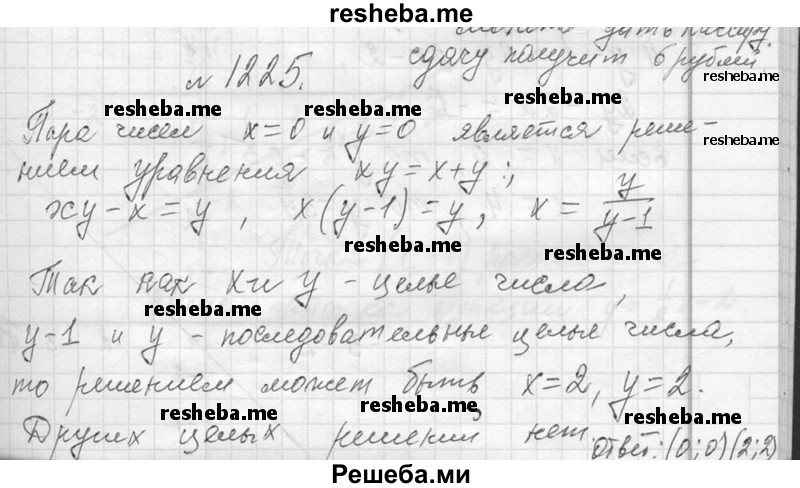 resheba.me
можно дать кассиру,
сдачу получит 6 рублей
resheba.me
№ 1225.
resheba.me
resheba.me resheba.me
Пара чисел x=0 и y=0 является реше-
resheba.me
нием уравнения xy=x+y:,
xy-x=y, x(y-1)=y, x = y/(y-1)
resheba.me resheba.me
Так как x и y - целые числа,
resheba.me
y-1 и y - последовательные целые числа,
то решением может быть x=2, y=2.
resheba.me resheba.me resheba.me
Других целых решений нет. Ответ: (0;0)(2;2)
Решеба.ми